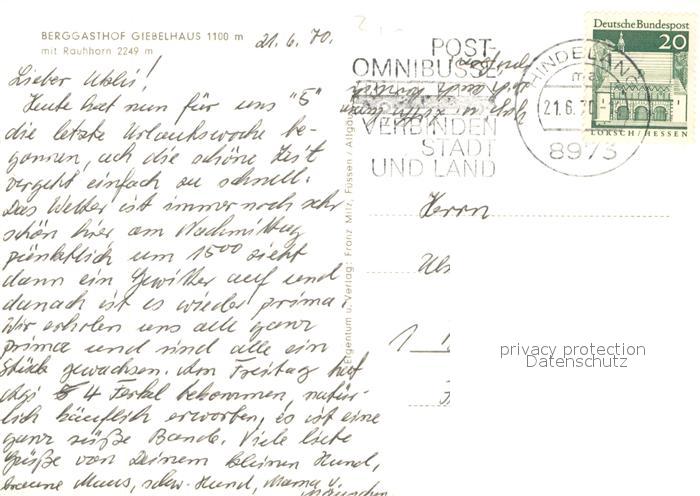 BERGGASTHOF GIEBELHAUS 1100 m
mit Rauhhorn 2249 m
21.6.70.
Lieber Uhlis!
Heute hat nun für uns "5"
die letzte Urlaubswoche be-
gonnen, ach die schöne Zeit
vergeht einfach zu schnell.
Das Wetter ist immer noch sehr
schön hier am Nachmittag
pünktlich um 15⁰⁰ zieht
dann ein Gewitter auf und
danach ist es wieder prima.
Wir erholen uns alle ganz
prima und sind alle ein
Stück gewachsen. Am Freitag hat
4 Ferkel bekommen, natür-
lich käuflich erworben, es ist eine
ganz süße Bande. Viele liebe
Grüße von Deinem kleinen Hund,
braune Maus, schw. Hund, Mama u.
Mäuschen
Eigentum u. Verlag: Franz Milz, Füssen / Allgäu
POST-
OMNIBUSSE
VERBINDEN
STADT
UND LAND
HINDELANG
21.6.70
8973
Deutsche Bundespost
20
LORSCH / HESSEN
Herrn
1
privacy protection
Datenschutz